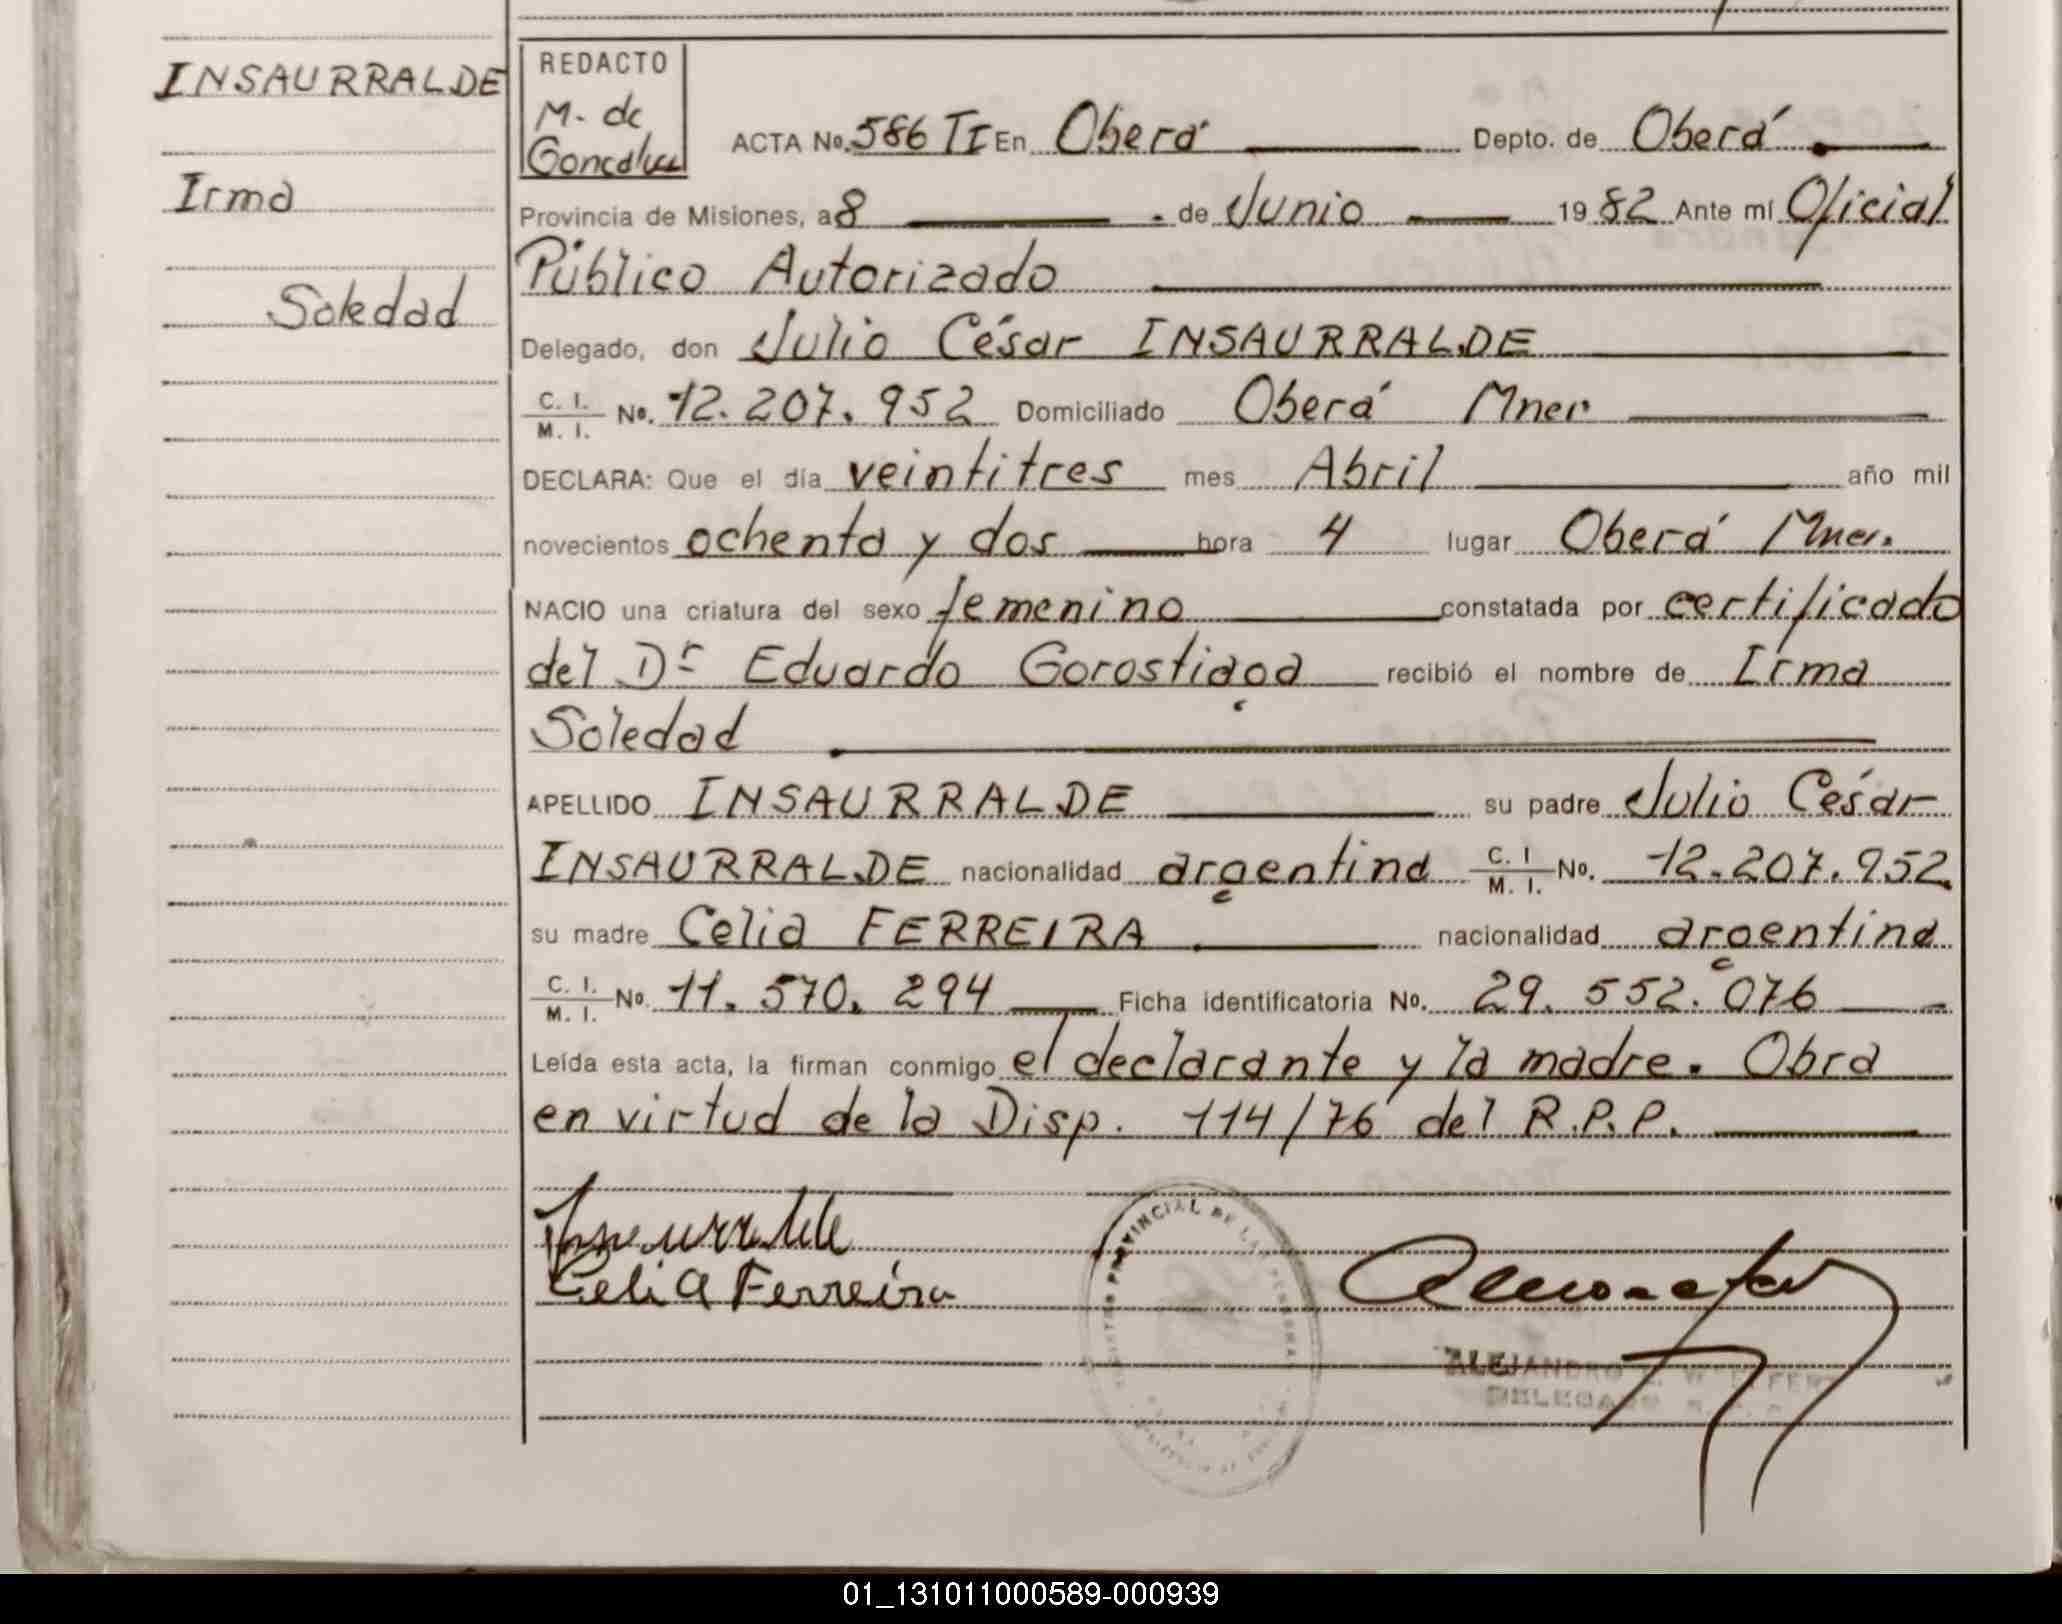 INSAURRALDE
Irma
Soledad
REDACTO
M. de
ACTA No. 586 TI En Oberá Depto. de Oberá
Provincia de Misiones, a 8 de Junio 19 82 Ante mí Oficial
Público Autorizado
Delegado, don Julio César INSAURRALDE
C. I. / M. I. No. 12.207.952 Domiciliado Oberá Mnes
DECLARA: Que el día veintitres mes Abril año mil
novecientos ochenta y dos hora 4 lugar Oberá Mnes.
NACIO una criatura del sexo femenino constatada por certificado
del Dr Eduardo Gorostiaga recibió el nombre de Irma
Soledad
APELLIDO INSAURRALDE su padre Julio César
INSAURRALDE nacionalidad argentina C. I / M. I. No. 12.207.952
su madre Celia FERREIRA nacionalidad argentina
C. I. / M. I. No. 11.570.294 Ficha identificatoria No. 29.552.076
Leída esta acta, la firman conmigo el declarante y la madre. Obra
en virtud de la Disp. 114/76 del R.P.P.
Insaurralde
Celia Ferreira
PROVINCIAL DE LAS PERSONAS
ALEJANDRO
DELEGADO
01_131011000589-000939